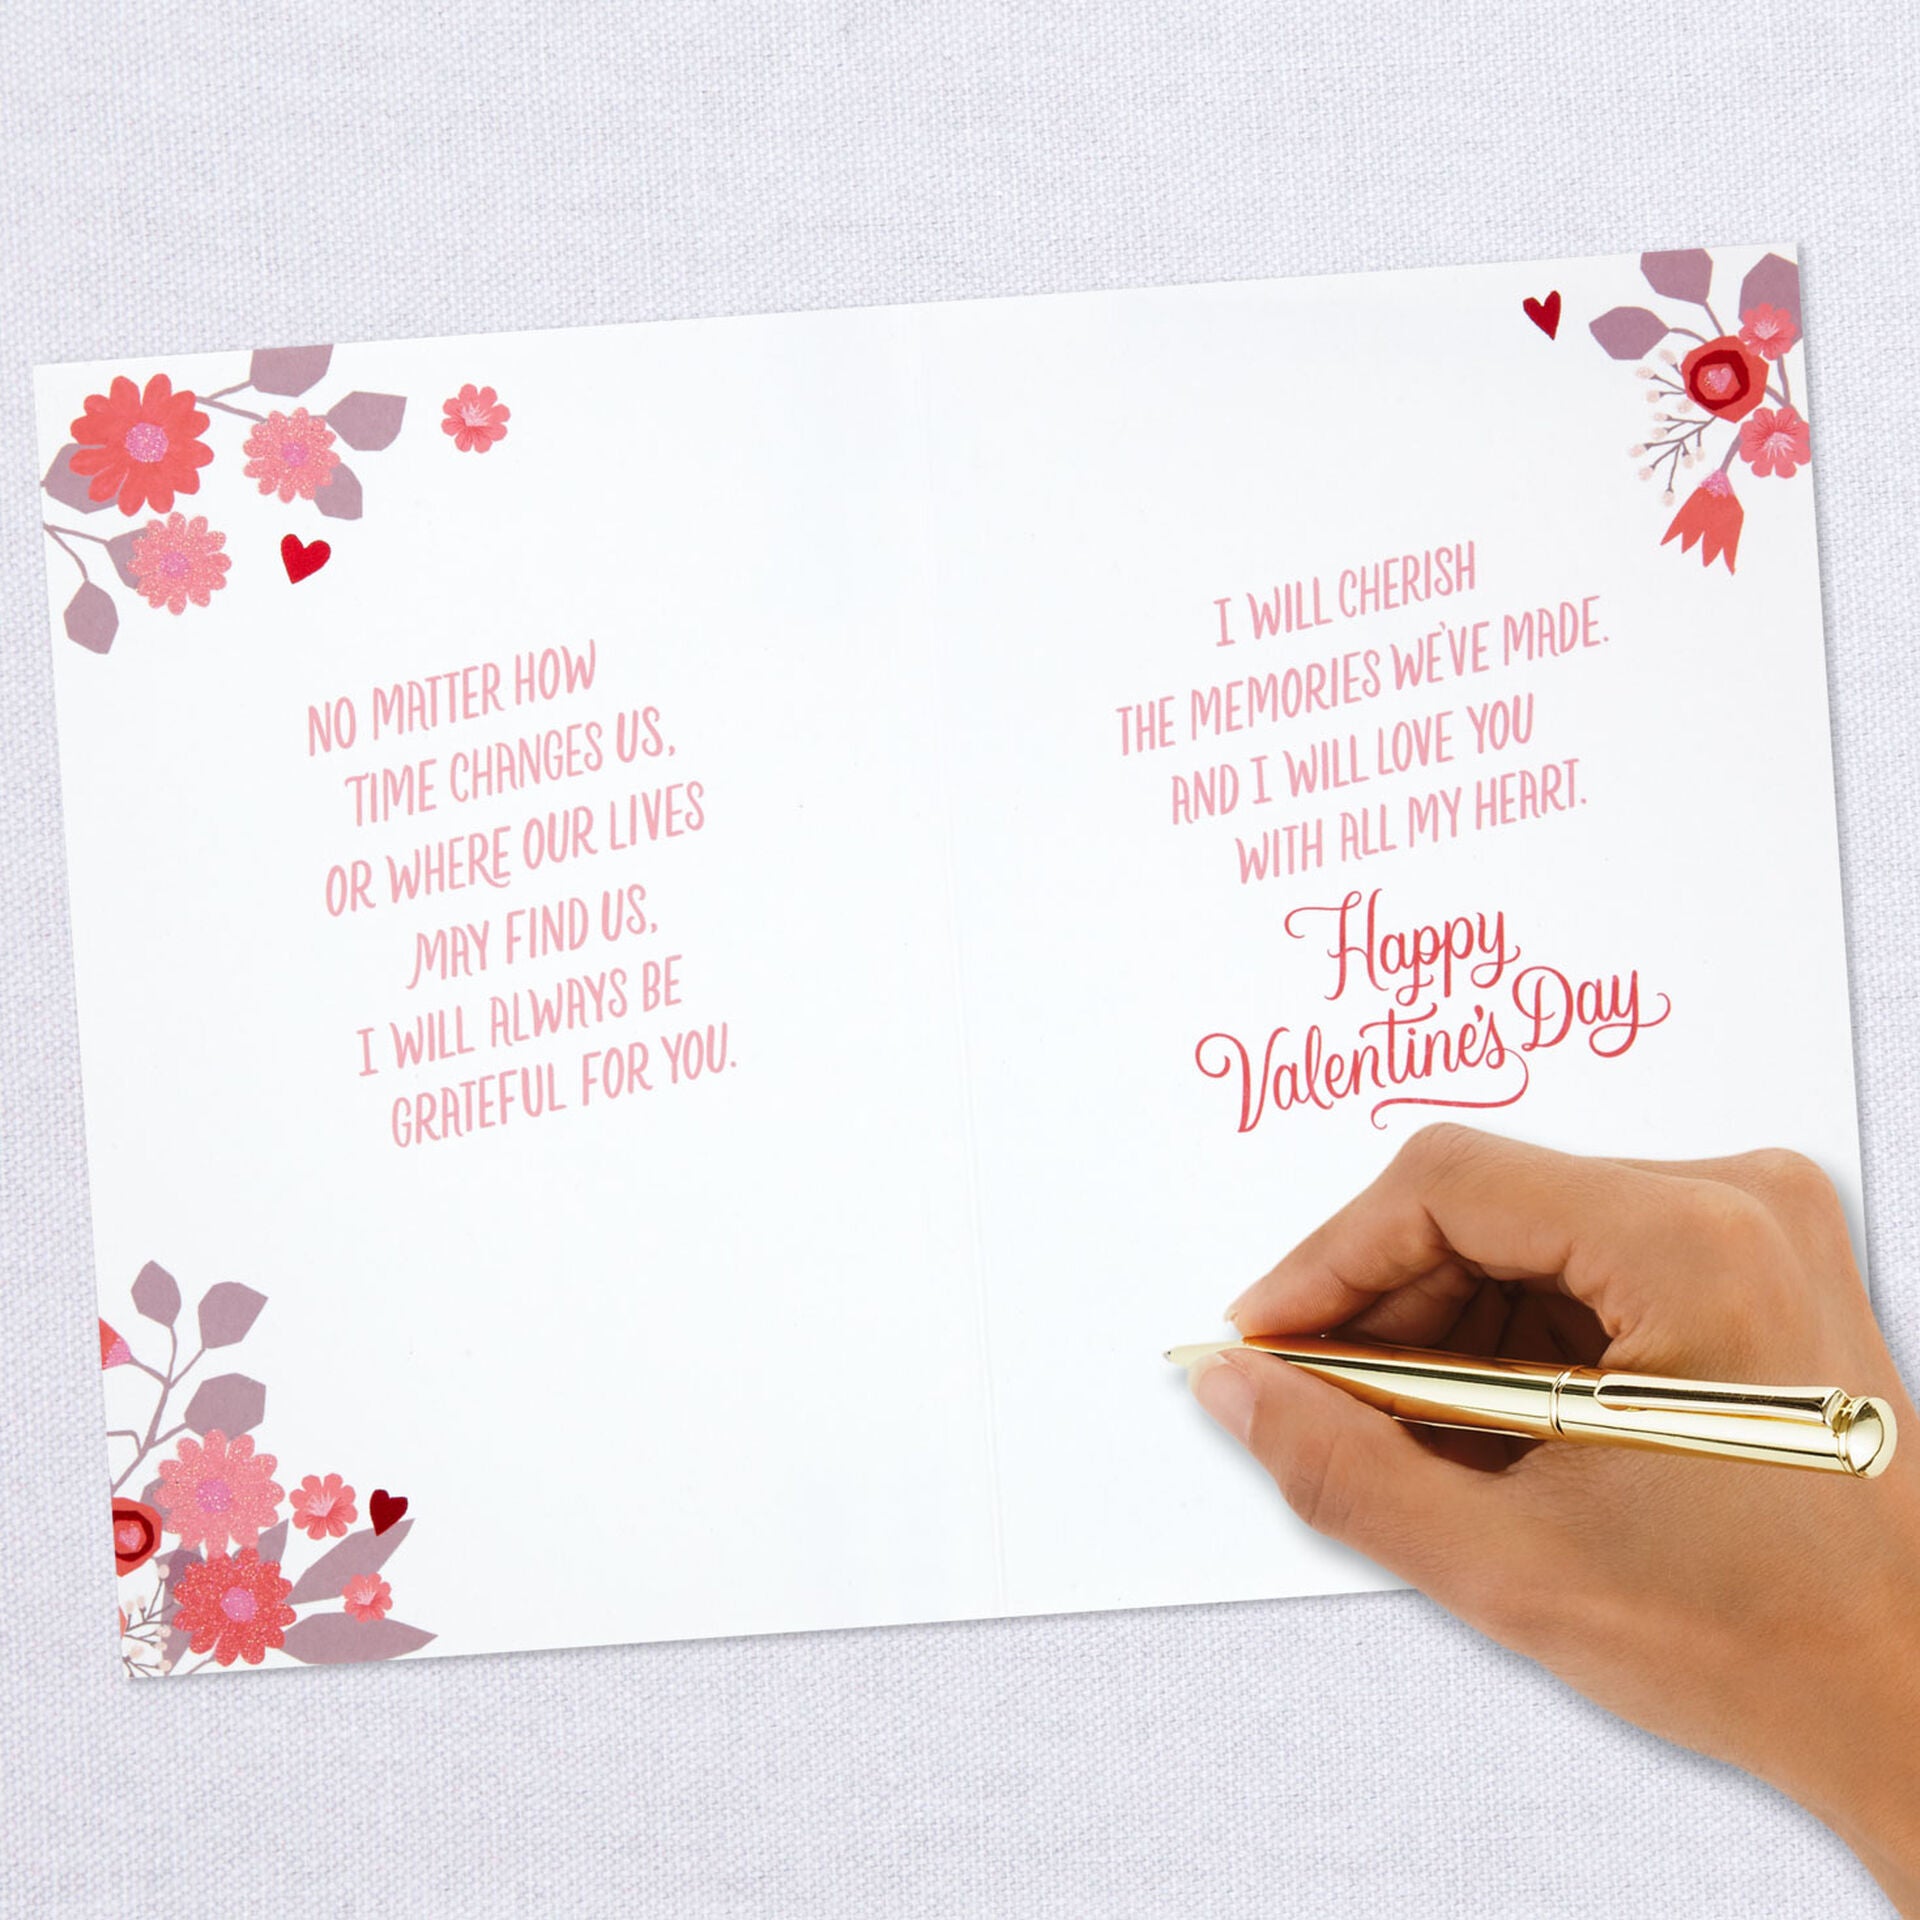 NO MATTER HOW
TIME CHANGES US,
OR WHERE OUR LIVES
MAY FIND US,
I WILL ALWAYS BE
GRATEFUL FOR YOU.
I WILL CHERISH
THE MEMORIES WE'VE MADE.
AND I WILL LOVE YOU
WITH ALL MY HEART.
Happy
Valentine's Day